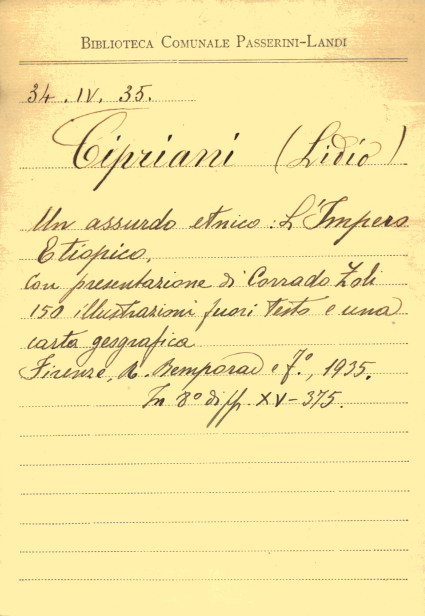 BIBLIOTECA COMUNALE PASSERINI-LANDI
34. IV. 35.
Cipriani (Lidio)
Un assurdo etnico: L'Impero
Etiopico.
Con presentazione di Corrado Zoli
150 illustrazioni fuori testo e una
carta geografica
Firenze, R. Bemporad e f.º, 1935.
In 8º di pp. XV-375.